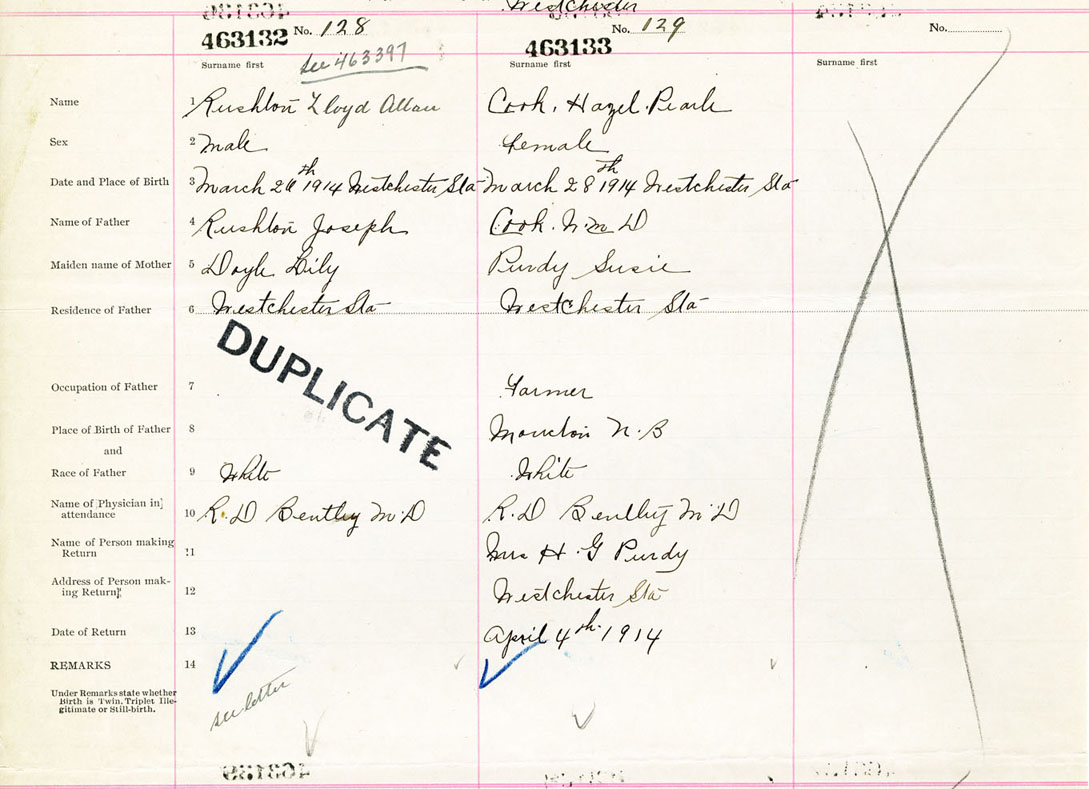 Westchester
463132 No. 128
463133 No. 129
No.
see 463397
Surname first
Surname first
Surname first
Name 1 Rushton Lloyd Allan Cook. Hazel Pearle
Sex 2 Male Female
Date and Place of Birth 3 March 26th 1914 Westchester Sta March 28th 1914 Westchester Sta
Name of Father 4 Rushton Joseph Cook. W.m D
Maiden name of Mother 5 Doyle Lily Purdy Susie
Residence of Father 6 Westchester Sta Westchester Sta
DUPLICATE
Occupation of Father 7 Farmer
Place of Birth of Father 8 Moncton N.B
and
Race of Father 9 White White
Name of Physician in
attendance 10 R.D Bentley M.D R.D Bentley M.D
Name of Person making
Return 11 Mrs H. G Purdy
Address of Person mak-
ing Return 12 Westchester Sta
Date of Return 13 April 4th 1914
REMARKS 14
Under Remarks state whether
Birth is Twin, Triplet Ille-
gitimate or Still-birth.
see letter